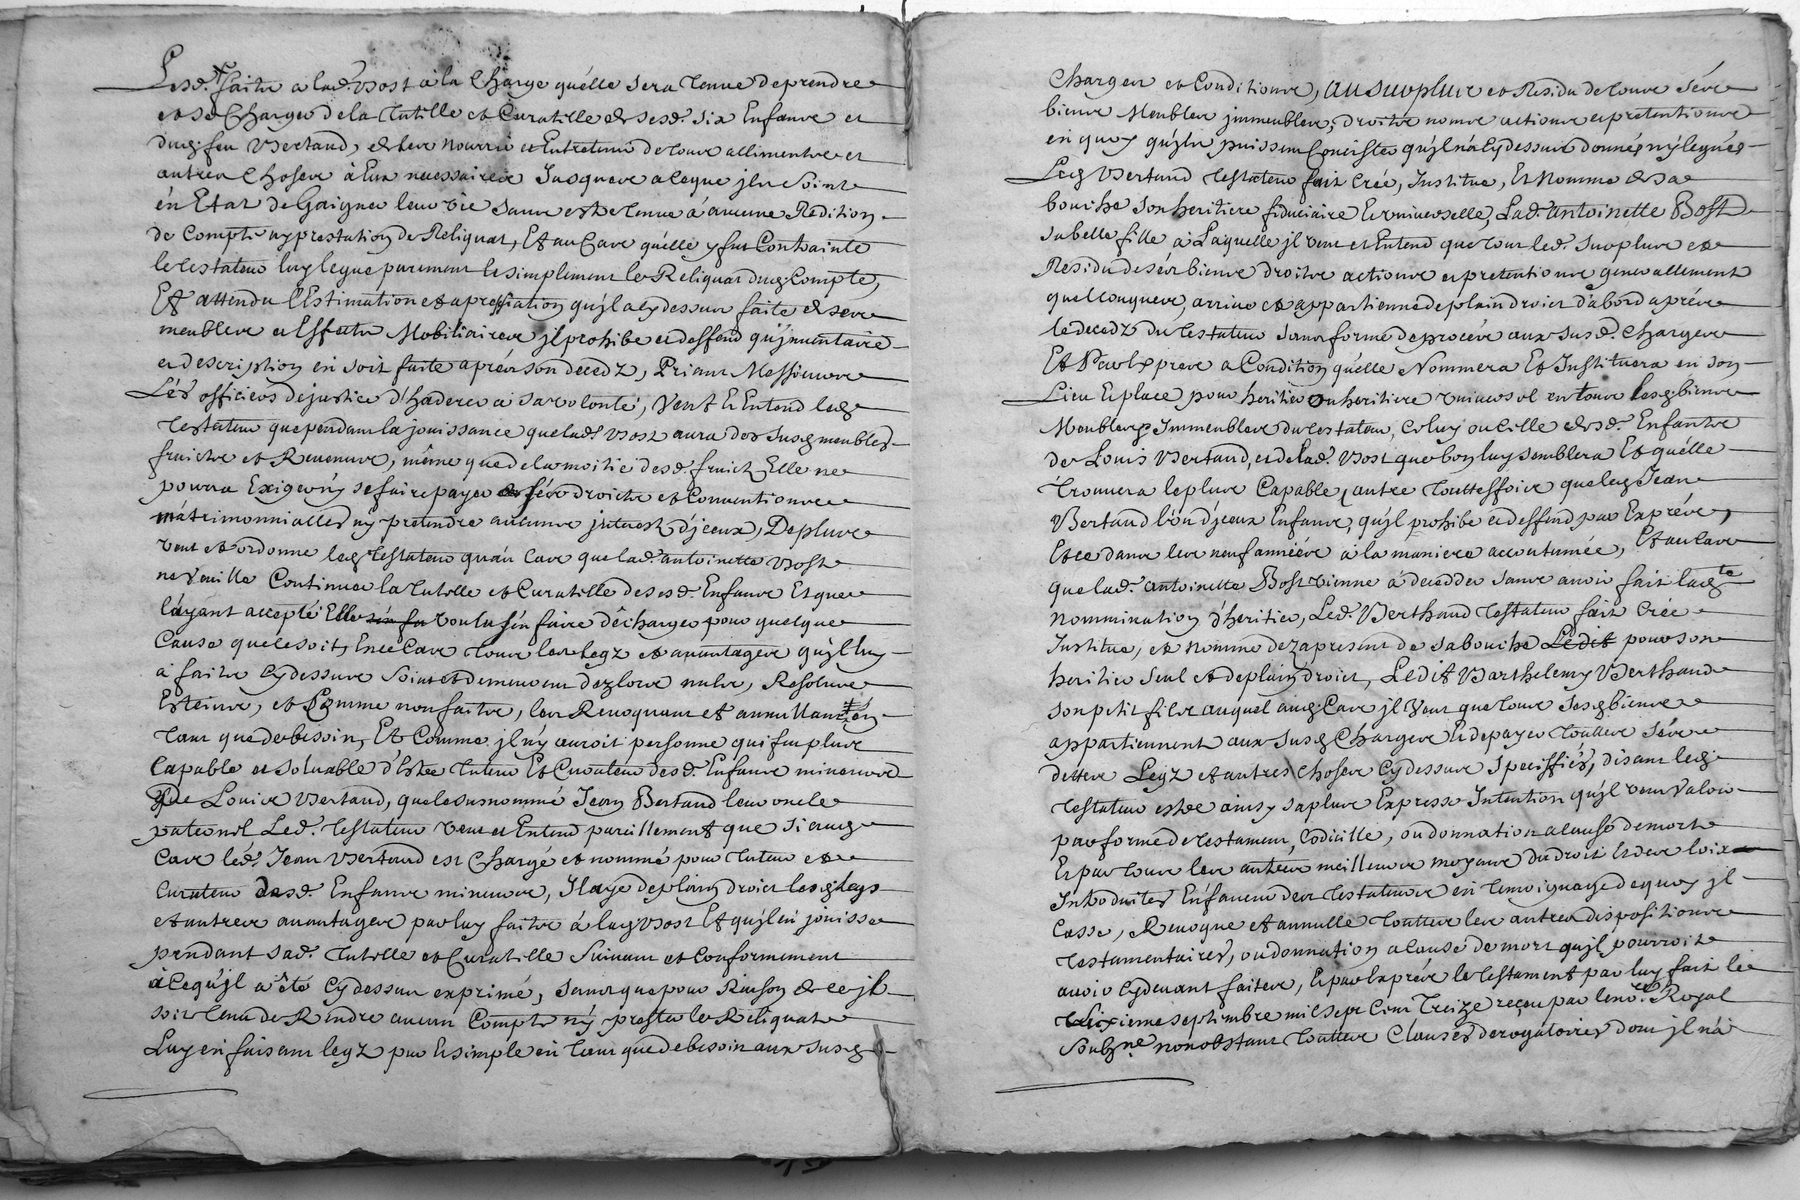 Lesd. faits a lad. Bost a la Charge quélle sera tenue de prendre
et se Charger de la tutelle et Curatelle de sesd. six Enfans et
dud. feu Bertand, et les nourrir et Entretenir de tous alliments et
autres Choses à Eux necessaires Jusques a ce que jls Soint
én Etat de Gaigner leur vie sans estre tenue à aucune Redition
de Compte ny prestation de Reliquat, Et au Cas quélle y fut Contrainte
le testateur luy legue purement et simplement le Reliquat dud. Compte,
Et attendu l'Estimation et apretiation quýl a cy dessus faite de ses
meubles et Effects Mobiliaires jl prohibe et deffend qu'jnventaire
et description en soit faite aprés son decedz, Priant Messieurs
Lés officiers de justice d'hadherer a sa volonté, Veut Et Entend led.
testateur que pendant la jouissance que lad. Bost aura des susd. meubles
fruicts et Revenus, même que de la moitié desd. fruicts Elle ne
pourra Exiger ny se faire payer sés droicts et Conventions
mátrimonnialles ny pretendre aucuns jnterest d'jceux, De plus
veut et ordonne led. testateur qu'au Cas que lad. antoinette Bost
ne Veuille Continuer la tutelle et Curatelle desesd. Enfans Et que
l'ayant accepté Elle voulu s'en faire déchargeo pour quelque
Cause que ce soit, En ce Cas tous les legz et avantages quýl luy
à faits cy dessus Soint et demeurent dezlors nuls, Resolus
Esteins, et Comme non faits, les Revoquant et annullant én
tant que de besoin, Et Comme jl n'y auroit personne qui fut plus
Capable et solvable d'Estre tuteur Et Curateur desd. Enfans mineurs
de Louis Bertand, que le susnommé Jean Bertand leur oncle
paternel Led. testateur veut et Entend pareillement que si aud.
Cas léd. Jean Bertand est Chargé et nommé pour tuteur et
Curateur desd. Enfans mineurs, Jl aye de plain droict lesd. legs
et autres avantages par luy faits à lad. Bost Et quýl en jouisse
pendant sad. tutelle et Curatelle Suivant et Conformement
à ce qu'jl a été Cy dessus exprimé, sans que pour Raison de ce jl
soit tenu de Rendre aucun Compte ny prester le Reliquat
Luy en faisant legz pur Et simple en tant que de besoin aux susd.
Charges et Conditions, au surplus et Residu de tous sés
biens Meubles jmmeubles, droits noms actions et pretentions
en quoy quýls puissent Concister qu'jl n'à Cy dessus donnés ný legués
Led. Bertand testateur fait Crée, Institue, Et Nomme de sa
bouche son heritiere fiduciaire Et universelle, Lad. antoinette Bost
sa belle fille à Laquelle jl veut et Entend que tout led. surplus et
Residu de sés biens droits actions et pretentions generallement
quelconques, arrive et appartienne de plain droict d'abord aprés
le decedz du testateur sans forme de procés aux susd. Charges
Et Par Exprés a Condition quélle Nommera Et Instituera en son
Lieu Et place pour heritier ou heritiere universel en tous lesd. biens
Meubles Immeubles du testateur, Celuy ou Celle desd. Enfants
de Louis Bertand, et de lad. Bost que bon luy semblera Et quélle
trouvera le plus Capable, autre touttesfois que led. Jean
Bertand l'un d'jceux Enfans, qu'jl prohibe et deffend par Exprés,
Et ce dans les neuf années à la maniere accoutumée, Et au Cas
que lad. antoinette Bost vienne à decedder sans avoir fait lad.te
nommination d'heritier, Led. Berthaud testateur fait Crée
Institue, et Nomme dez apresent de sa bouche pour son
heritier seul et de plain droict, Ledit Barthelemy Berthaud
son petit fils auquel aud. Cas jl Veut que tous sesd. biens
appartiennent aux susd. Charges Et de payer touttes sés
dettes Legz et autres Choses Cy dessus speciffiés, disant led.
testateur estre ainsy sa plus Expresse Intention qu'jl veut Valoir
par forme de testament, Codicille, ou donnation a cause de mort
Et par tous les autres meilleurs moyens du droit Et des loix
Introduites Enfaveur des testateurs en temoignage de quoy jl
Casse, Revoque et annulle touttes les autres dispositions
testamentaires, ou donnation a cause de mort qu'jl pourroit
avoir Cy devant faites, Et par Exprés le testament par luy fait le
dixieme septembre mil sept Cent Treize reçeu par le no.re Royal
soubz.né nonobstant touttes Clauses derogatoires dont jl n'à